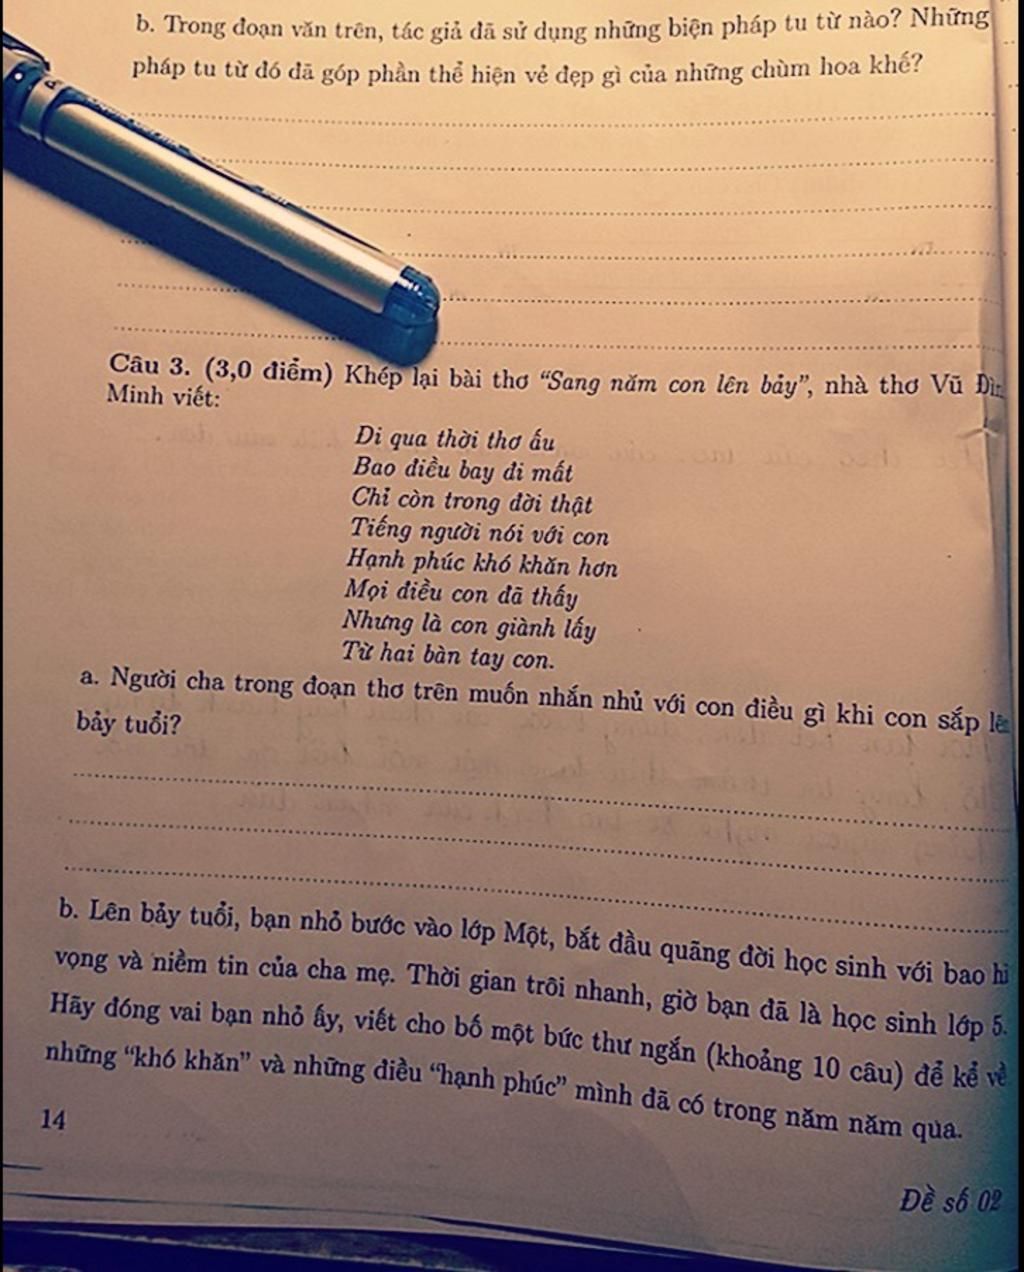 b. Trong đoạn văn trên, tác giả đã sử dụng những biện pháp tu từ nào? Những
pháp tu từ đó đã góp phần thể hiện vẻ đẹp gì của những chùm hoa khế?
Câu 3. (3,0 điểm) Khép lại bài thơ “Sang năm con lên bảy”, nhà thơ Vũ
Minh viết:
Đi qua thời thơ ấu
Bao điều bay đi mất
Chỉ còn trong đời thật
Tiếng người nói với con
Hạnh phúc khó khăn hơn
Mọi điều con đã thấy
Nhưng là con giành lấy
Từ hai bàn tay con.
a. Người cha trong đoạn thơ trên muốn nhắn nhủ với con điều gì khi con sắp
bảy tuổi?
b. Lên bảy tuổi, bạn nhỏ bước vào lớp Một, bắt đầu quãng đời học sinh với bao
vọng và niềm tin của cha mẹ. Thời gian trôi nhanh, giờ bạn đã là học sinh lớp 5.
Hãy đóng vai bạn nhỏ ấy, viết cho bố một bức thư ngắn (khoảng 10 câu) để kể về
những “khó khăn” và những điều “hạnh phúc” mình đã có trong năm năm qua.
14
Đề số 02